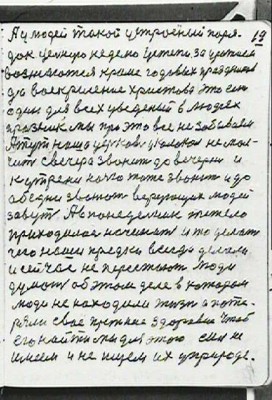 А у людей такой устроеный поря- 19
док целую неделю
возносятся кроме годовых праздников
да воскреление христова это сен
один для всех уведений в людях
празник мы про это все не забываем
А тут наша церковь у колокол не мол-
чит с вечера звонит до вечерни и
к утрени ночю тоже звонят и до
обедни звонят верующих людей
зовут А в понедельник тяжело
приходится начинать и то делать
чего наши предки всегда делали
и сейчас не перестают люди
думать об этом деле в котором
люди не находили жизни а поте-
ряли свое прежние здоровие чтоб
его найти мы для этого сил не
имеем и не ищем их у природе.